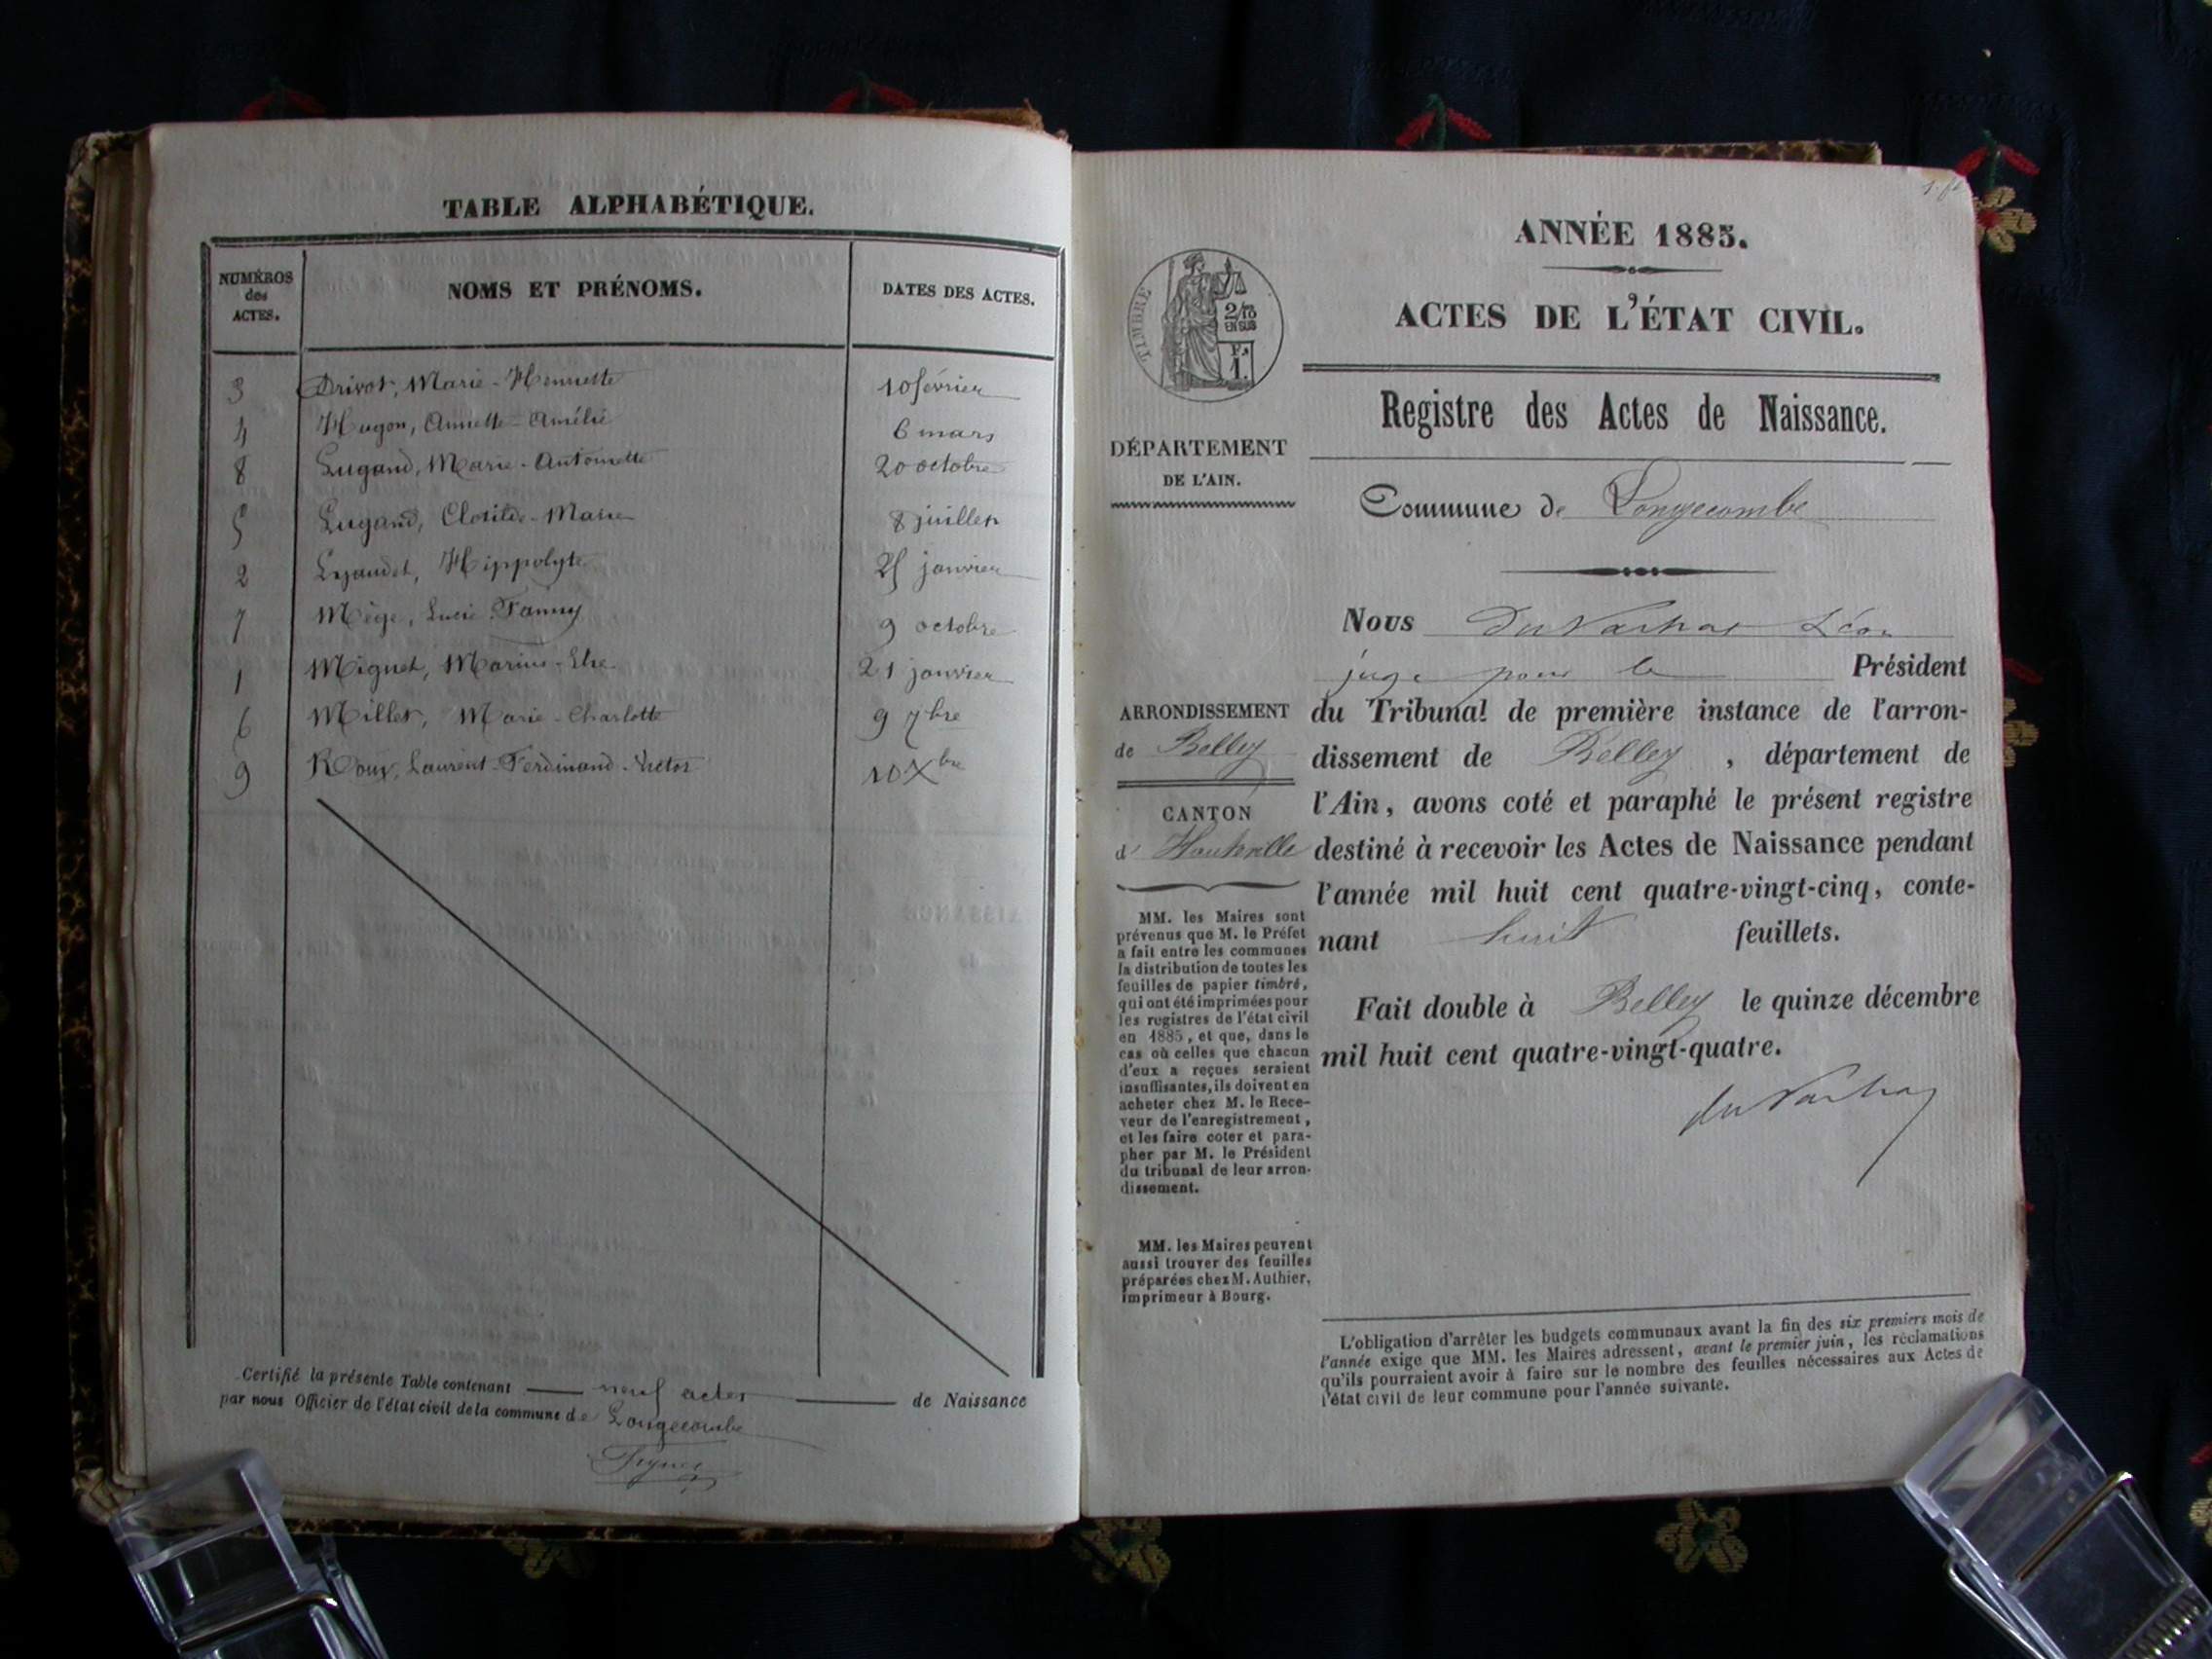 TABLE ALPHABÉTIQUE.
NUMÉROS des ACTES.
NOMS ET PRÉNOMS.
DATES DES ACTES.
3 Drivot, Marie-Henriette 10 février
4 Hugon, Annette-Amélie 6 mars
8 Lugand, Marie-Antoinette 20 octobre
5 Lugand, Clotilde-Marie 8 juillet
2 Lyaudet, Hippolyte 25 janvier
7 Mège, Lucie Fanny 9 octobre
1 Miguet, Marius- 21 janvier
6 Millet, Marie-Charlotte 9 7bre
9 Roux, Laurent-Ferdinand-Victor 10 Xbre
Certifié la présente Table contenant neuf actes de Naissance
par nous Officier de l'état civil de la commune de Longecombe
1. f.
ANNÉE 1885.
ACTES DE L'ÉTAT CIVIL.
TIMBRE
2/10
EN SUS
F.
1.
Registre des Actes de Naissance.
DÉPARTEMENT
DE L'AIN.
Commune de Longecombe
Nous Léon
juge pour le Président
du Tribunal de première instance de l'arron-
dissement de Belley, département de
l'Ain, avons coté et paraphé le présent registre
destiné à recevoir les Actes de Naissance pendant
l'année mil huit cent quatre-vingt-cinq, conte-
nant huit feuillets.
Fait double à Belley le quinze décembre
mil huit cent quatre-vingt-quatre.
ARRONDISSEMENT
de Belley
CANTON
d' Hauteville
MM. les Maires sont
prévenus que M. le Préfet
a fait entre les communes
la distribution de toutes les
feuilles de papier timbré,
qui ont été imprimées pour
les registres de l'état civil
en 1885, et que, dans le
cas où celles que chacun
d'eux a reçues seraient
insuffisantes, ils doivent en
acheter chez M. le Rece-
veur de l'enregistrement,
et les faire coter et para-
pher par M. le Président
du tribunal de leur arron-
dissement.
MM. les Maires peuvent
aussi trouver des feuilles
préparées chez M. Authier,
imprimeur à Bourg.
L'obligation d'arrêter les budgets communaux avant la fin des six premiers mois de
l'année exige que MM. les Maires adressent, avant le premier juin, les réclamations
qu'ils pourraient avoir à faire sur le nombre des feuilles nécessaires aux Actes de
l'état civil de leur commune pour l'année suivante.